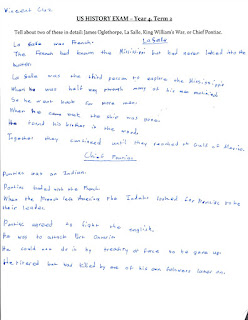 Vincent Cut
US HISTORY EXAM – Year 4, Term 2
Tell about two of these in detail: James Oglethorpe, La Salle, King William's War, or Chief Pontiac.
LaSalle
La Salle was French.
The French had known the Mississippi but had never looked into the bottom.
La Salle was the third person to explore the Mississippi
When he was half way through many of his men
So he went back for more men.
When he came back the ship was gone.
He found his brother in the woods
Together they continued until they reached Gulf of Mexico.
Chief Pontiac
Pontiac was an Indian.
Pontiac traded with the French.
When the French left America the Indians looked for Pontiac to be
their leader.
Pontiac agreed to fight the english.
He was to attack Fort
He could not do it by treachery or force so he gave up.
He retired but was killed by one of his own followers later on.